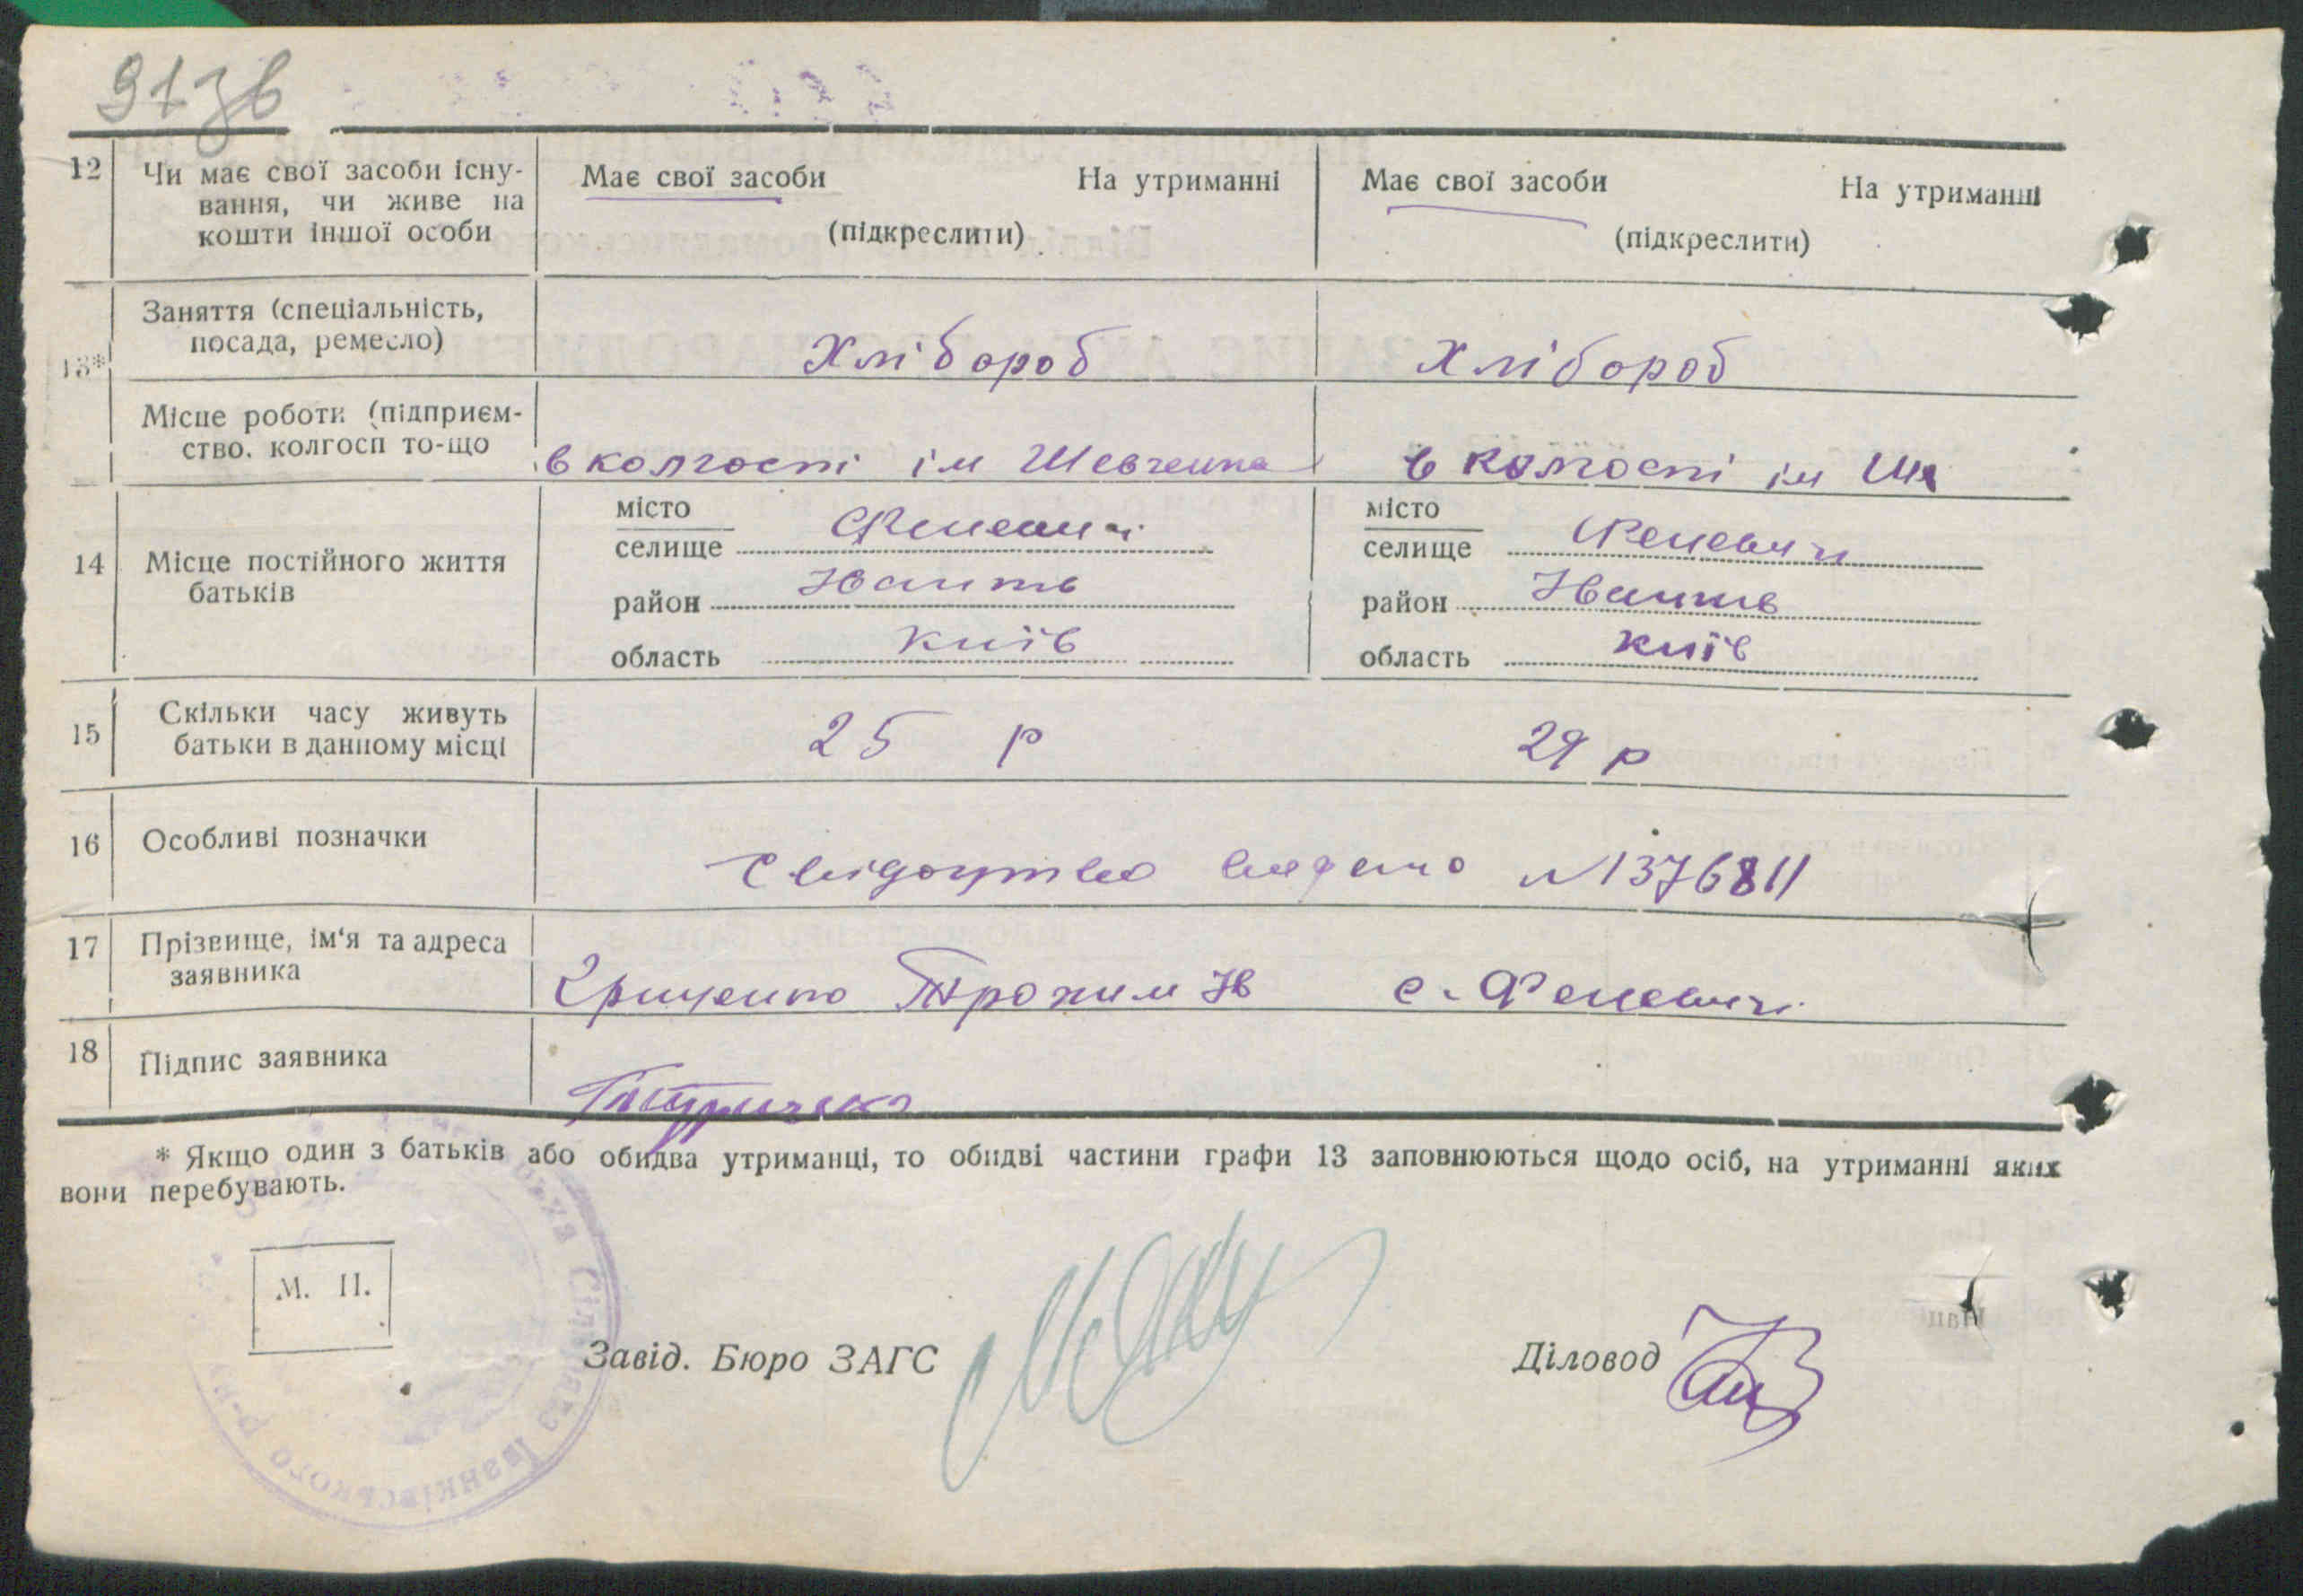 913в
12 Чи має свої засоби існу- Має свої засоби На утриманні Має свої засоби На утриманні
вання, чи живе на
кошти іншої особи (підкреслити) (підкреслити)
13* Заняття (спеціальність,
посада, ремесло) Хлібороб Хлібороб
Місце роботи (підприєм-
ство, колгосп то-що в колгоспі ім Шевченка в колгоспі ім Ше
14 Місце постійного життя
батьків
місто
селище Феневичі
район Іванків
область Київ
місто
селище Феневичи
район Іванків
область Київ
15 Скільки часу живуть
батьки в данному місці 25 р 29 р
16 Особливі позначки Свідоцтво видано №1376811
17 Прізвище, ім'я та адреса
заявника Грищенко Трохим Ів с. Феневичі
18 Підпис заявника
* Якщо один з батьків або обидва утриманці, то обидві частини графи 13 заповнюються щодо осіб, на утриманні яких
вони перебувають.
М. П.
Завід. Бюро ЗАГС Діловод
Іванківського р-ну